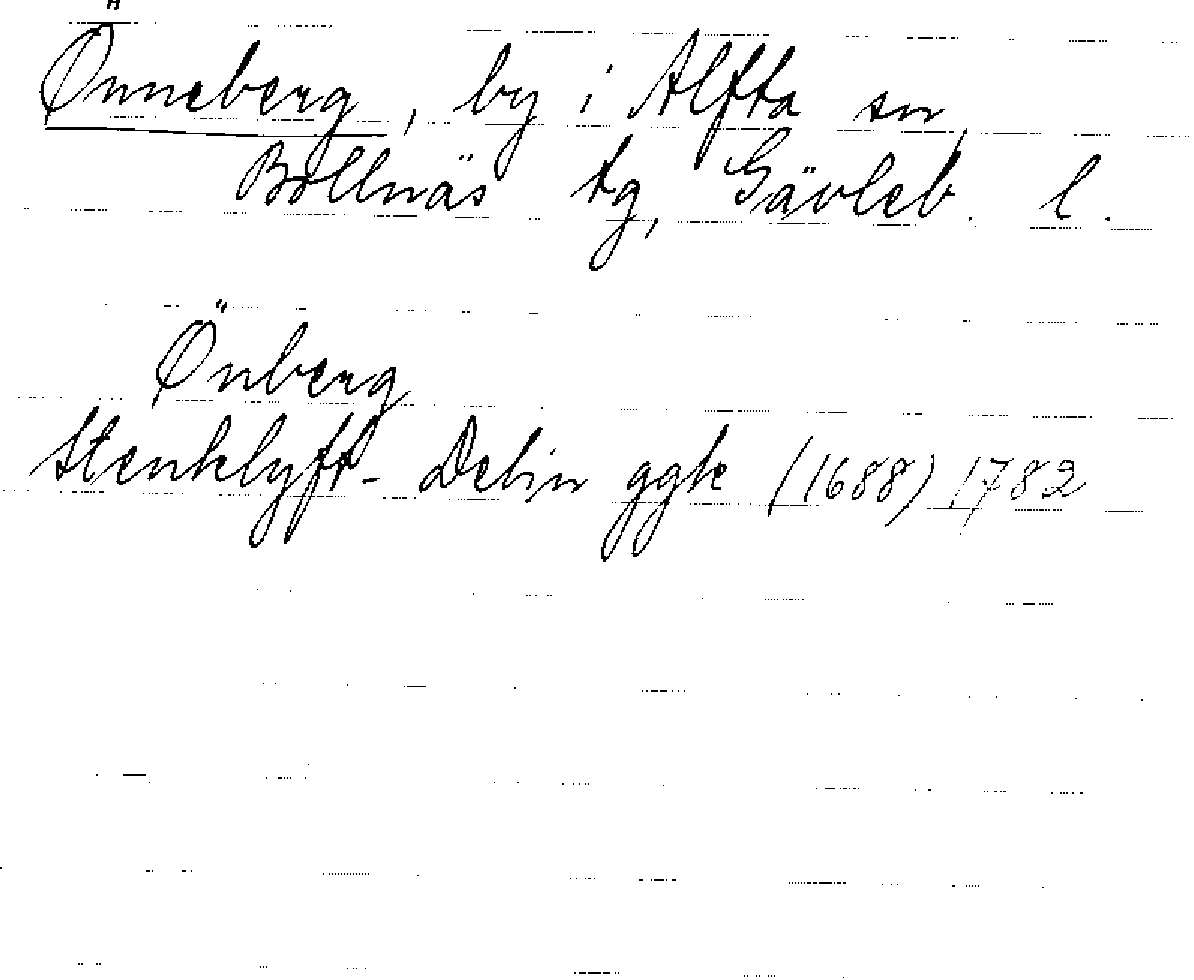 Önneberg, by i Alfta sn,
Bollnäs tg, Gävleb. l.
Önberg
Stenklyft- Delin ggk (1688) 1782